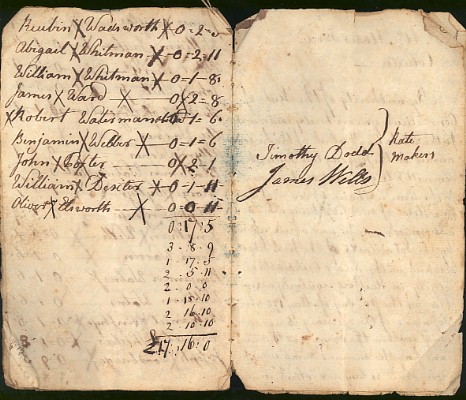 Reubin Wadsworth 0=2=3
Abigail Whitman 0=2=11
William Whitman 0-1-8
James Ward 0 2=8
Robert Watesman 0=1=6
Benjamin Webber 0=1=6
John 0 2 1
William Dexter 0-1-11
Oliver Elsworth 0 0 11
0:17:5
3:8:9
1:17:5
2:5:11
2:0:0
1:15:10
2:16:10
2:10:10
£17:16:0
Timothy Dodd
James Wells
Rate
Makers